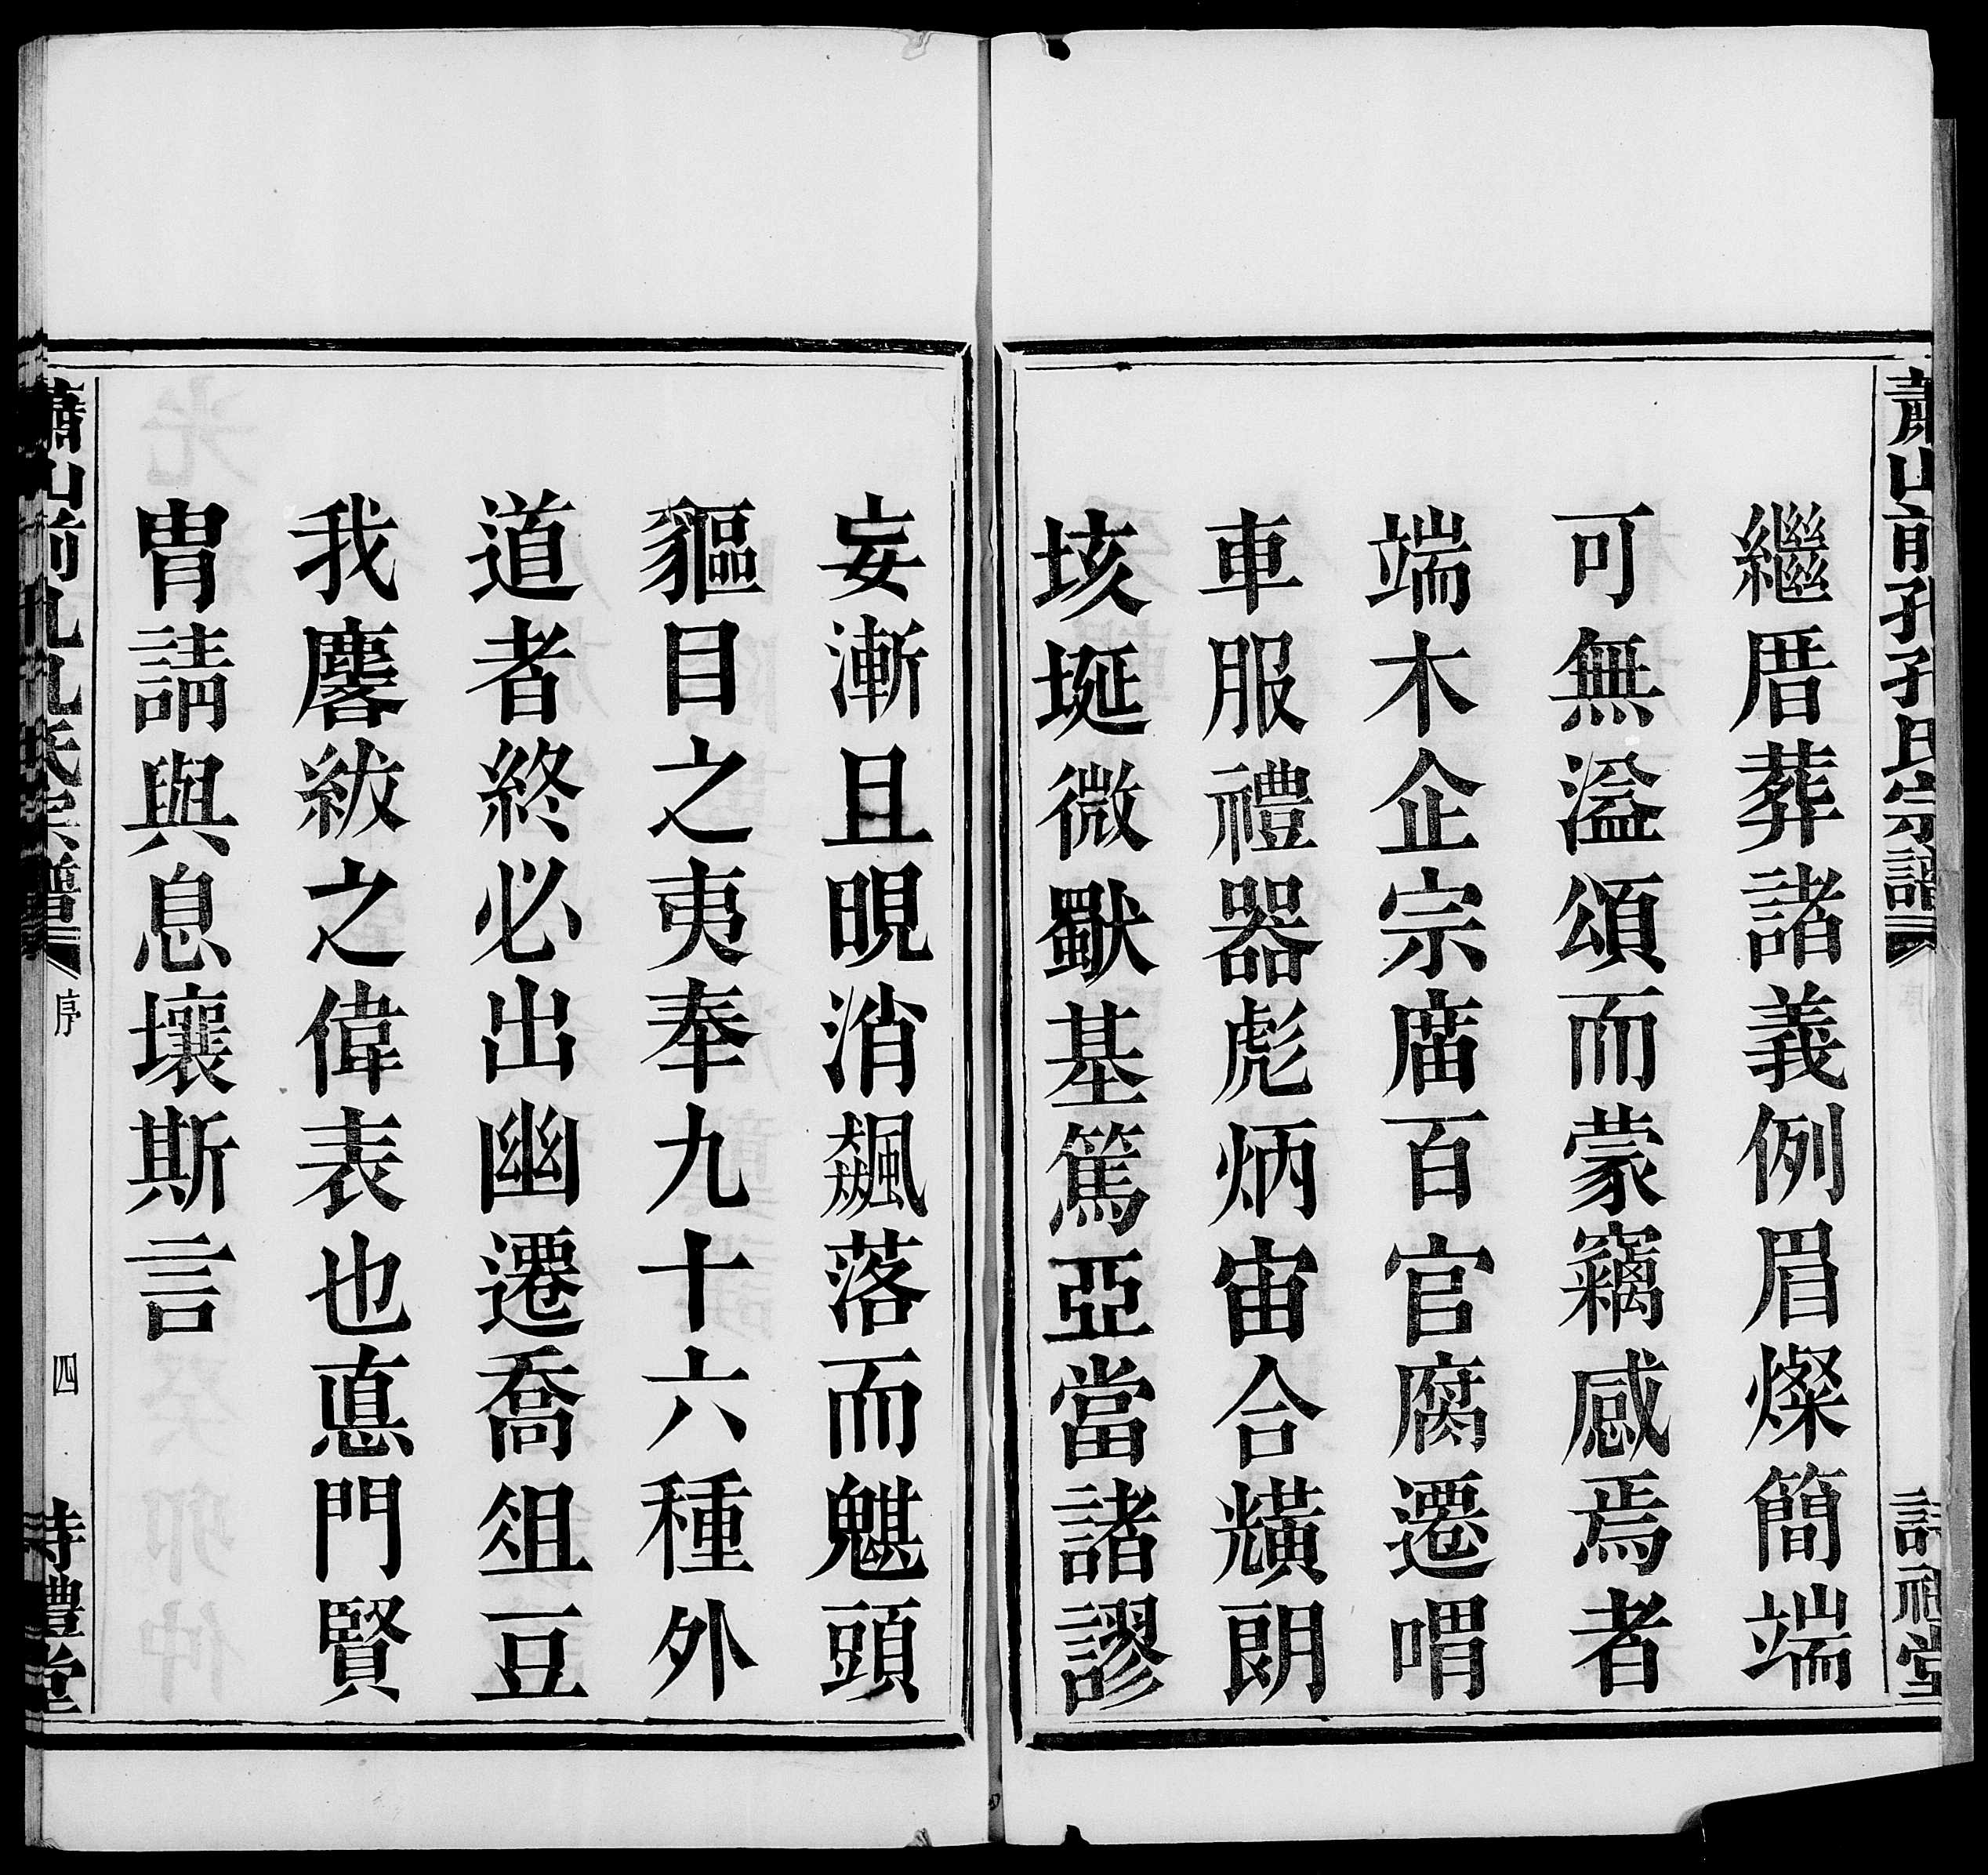 蕭山前孔孔氏宗譜
詩禮堂
繼厝葬諸義例眉燦簡端
可無溢頌而蒙竊感焉者
端木企宗庿百官腐遷喟
車服禮器彪炳宙合爌朗
垓埏微猷基篤亞當諸謬
妄漸且晛消飆落而魌頭
貙目之夷奉九十六種外
道者終必出幽遷喬俎豆
我麐紱之偉表也悳門賢
胄請與息壤斯言
蕭山前孔孔氏宗譜
序
四
詩禮堂